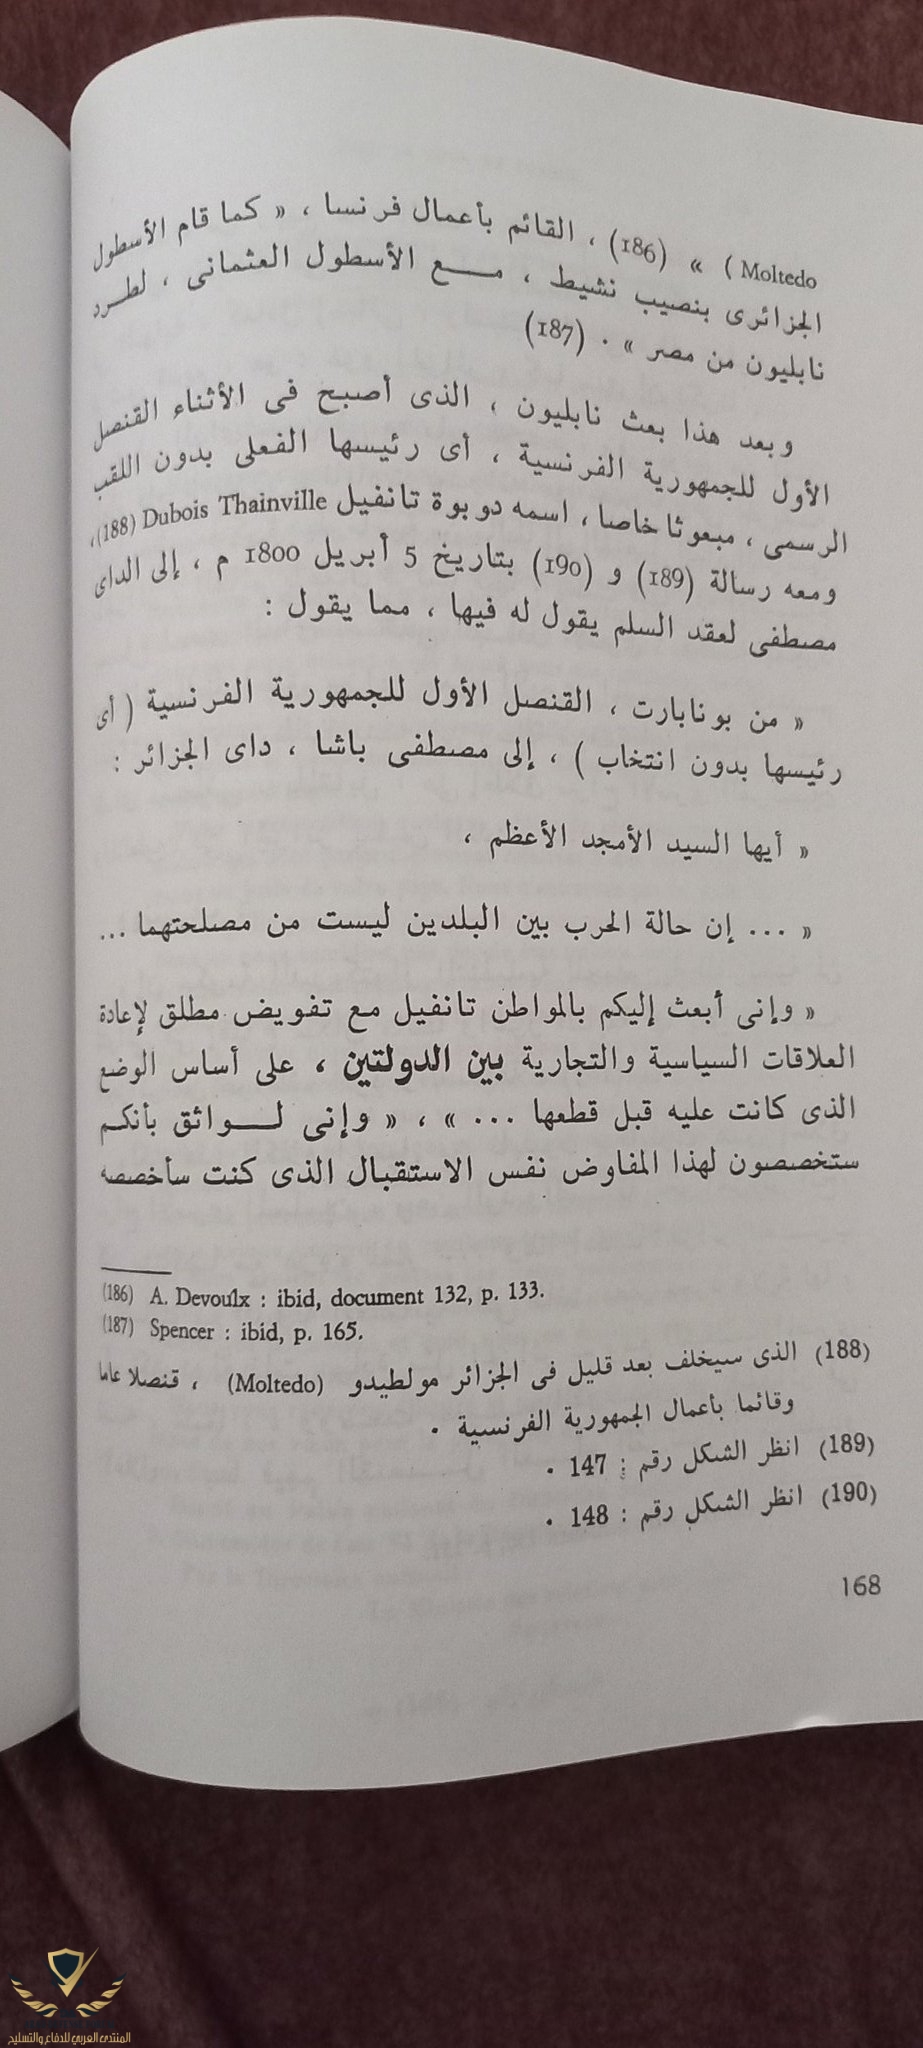 Moltedo ) » (186) ، القائم بأعمال فرنسا ، « كما قام الأسطول
الجزائرى بنصيب نشيط ، مــع الأسطول العثمانى ، لطـرد
نابليون من مصر » . (187)
وبعد هذا بعث نابليون ، الذى أصبح فى الأثناء القنصل
الأول للجمهورية الفرنسية ، أى رئيسها الفعلى بدون اللقب
الرسمى ، مبعوثا خاصا ، اسمه دوبوة تانفيل Dubois Thainville (188) ،
ومعه رسالة (189) و (190) بتاريخ 5 أبريل 1800 م ، إلى الداى
مصطفى لعقد السلم يقول له فيها ، مما يقول :
« من بونابارت ، القنصل الأول للجمهورية الفرنسية ( أى
رئيسها بدون انتخاب ) ، إلى مصطفى باشا ، داى الجزائر :
« أيها السيد الأمجد الأعظم ،
« ... إن حالة الحرب بين البلدين ليست من مصلحتهما ...
« وإنى أبعث إليكم بالمواطن تانفيل مع تفويض مطلق لإعادة
العلاقات السياسية والتجارية بين الدولتين ، على أساس الوضع
الذى كانت عليه قبل قطعها ... » ، « وإنى لــواثق بأنكم
ستخصصون لهذا المفاوض نفس الاستقبال الذى كنت سأخصصه
(186) A. Devoulx : ibid, document 132, p. 133.
(187) Spencer : ibid, p. 165.
(188) الذى سيخلف بعد قليل فى الجزائر مولطيدو (Moltedo) ، قنصلا عاما
وقائما بأعمال الجمهورية الفرنسية .
(189) انظر الشكل رقم : 147 .
(190) انظر الشكل رقم : 148 .
168
المنتدى العربي للدفاع والتسليح